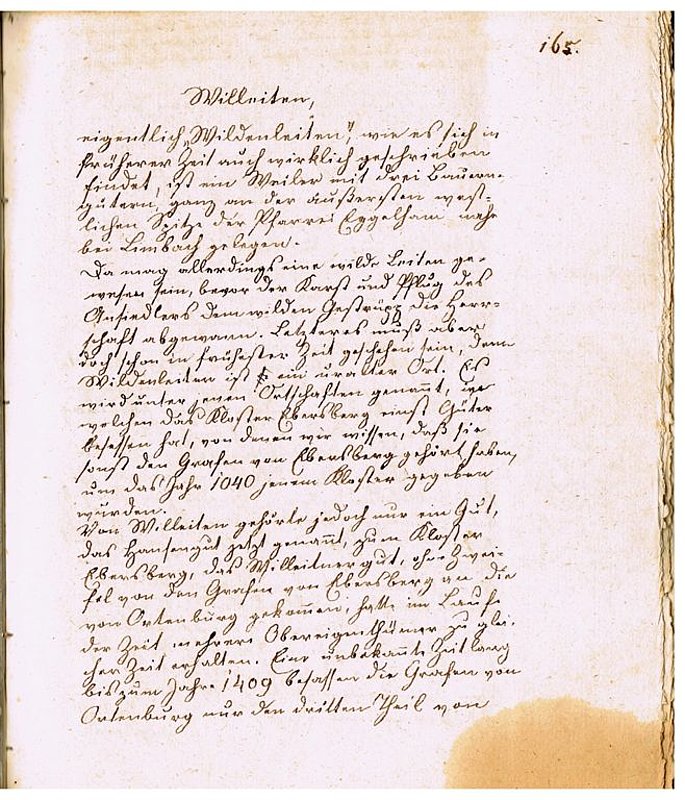 165.
Willeiten,
eigentlich „Wildenleiten", wie es sich in
früherer Zeit auch wirklich geschrieben
findet, ist ein Weiler mit drei Bauern-
gütern, ganz an der äußersten west-
lichen Spitze der Pfarrei Eggelham nahe
bei Limbach gelegen.
Da mag allerdings eine wilde Leiten ge-
wesen sein, bevor der Karst und Pflug des
Ansiedlers dem wilden Gestrüpp die Herr-
schaft abgewann. Letzteres muß aber
doch schon in frühester Zeit geschehen sein, denn
Wildenleiten ist ein uralter Ort. Es
wird unter jenen Ortschaften genannt, in
welchen das Kloster Ebersberg einst Güter
besessen hat, von denen wir wissen, daß sie
sonst den Grafen von Ebersberg gehört haben,
um das Jahr 1040 jenem Kloster gegeben
wurden.
Von Willeiten gehörte jedoch nur ein Gut,
das Hansengut jetzt genannt, zum Kloster
Ebersberg, das Willeitnergut, ohne Zwei-
fel von den Grafen von Ebersberg an die
von Ortenburg gekommen, hatte im Laufe
der Zeit mehrere Obereigenthümer zu glei-
cher Zeit erhalten. Eine unbekannte Zeit lang
bis zum Jahre 1409 besassen die Grafen von
Ortenburg nur den dritten Theil von